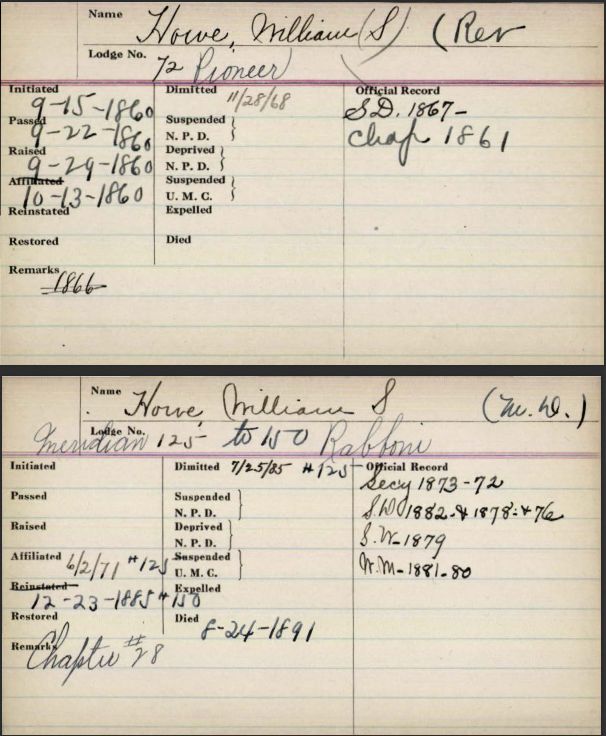 Name Howe, William (S) (Rev
Lodge No. 72 Pioneer
Initiated 9-15-1860 Dimitted 11/28/68 Official Record
S.D. 1867-
Passed 9-22-1860 Suspended
N. P. D.
Chap 1861
Raised 9-29-1860 Deprived
N. P. D.
Affiliated 10-13-1860 Suspended
U. M. C.
Reinstated Expelled
Restored Died
Remarks 1866
Name Howe, William S (M.D.)
Lodge No.
Meridian 125 to 150 Rabboni
Initiated Dimitted 7/25/85 #125 Official Record
Secy 1873-72
Passed Suspended
N. P. D.
S.D. 1882-& 1878-& 76
Raised Deprived
N. P. D.
S.W-1879
Affiliated 6/2/71 #125 Suspended
U. M. C.
W.M-1881-80
Reinstated Expelled
12-23-1885 #150
Restored Died 8-24-1891
Remarks Chapter #28